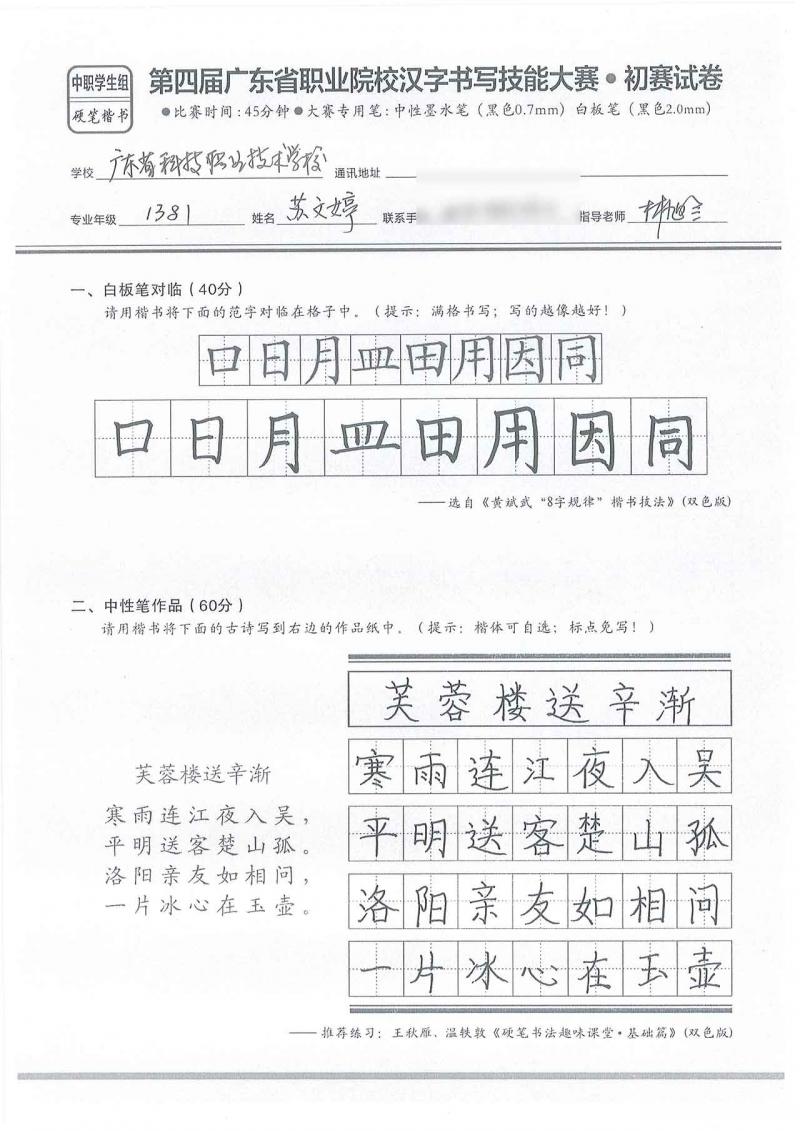 中职学生组
硬笔楷书
第四届广东省职业院校汉字书写技能大赛•初赛试卷
●比赛时间:45分钟●大赛专用笔:中性墨水笔(黑色0.7mm)白板笔(黑色2.0mm)
学校 广东省科技职业技术学校 通讯地址
专业年级 1381 姓名 苏文婷 联系手 指导老师
一、白板笔对临(40分)
请用楷书将下面的范字对临在格子中。(提示:满格书写;写的越像越好!)
口日月皿田用因同
口日月皿田用因同
——选自《黄斌武“8字规律”楷书技法》(双色版)
二、中性笔作品(60分)
请用楷书将下面的古诗写到右边的作品纸中。(提示:楷体可自选;标点免写!)
芙蓉楼送辛渐
寒雨连江夜入吴,
平明送客楚山孤。
洛阳亲友如相问,
一片冰心在玉壶。
芙蓉楼送辛渐
寒雨连江夜入吴
平明送客楚山孤
洛阳亲友如相问
一片冰心在玉壶
——推荐练习:王秋雁、温轶敦《硬笔书法趣味课堂·基础篇》(双色版)